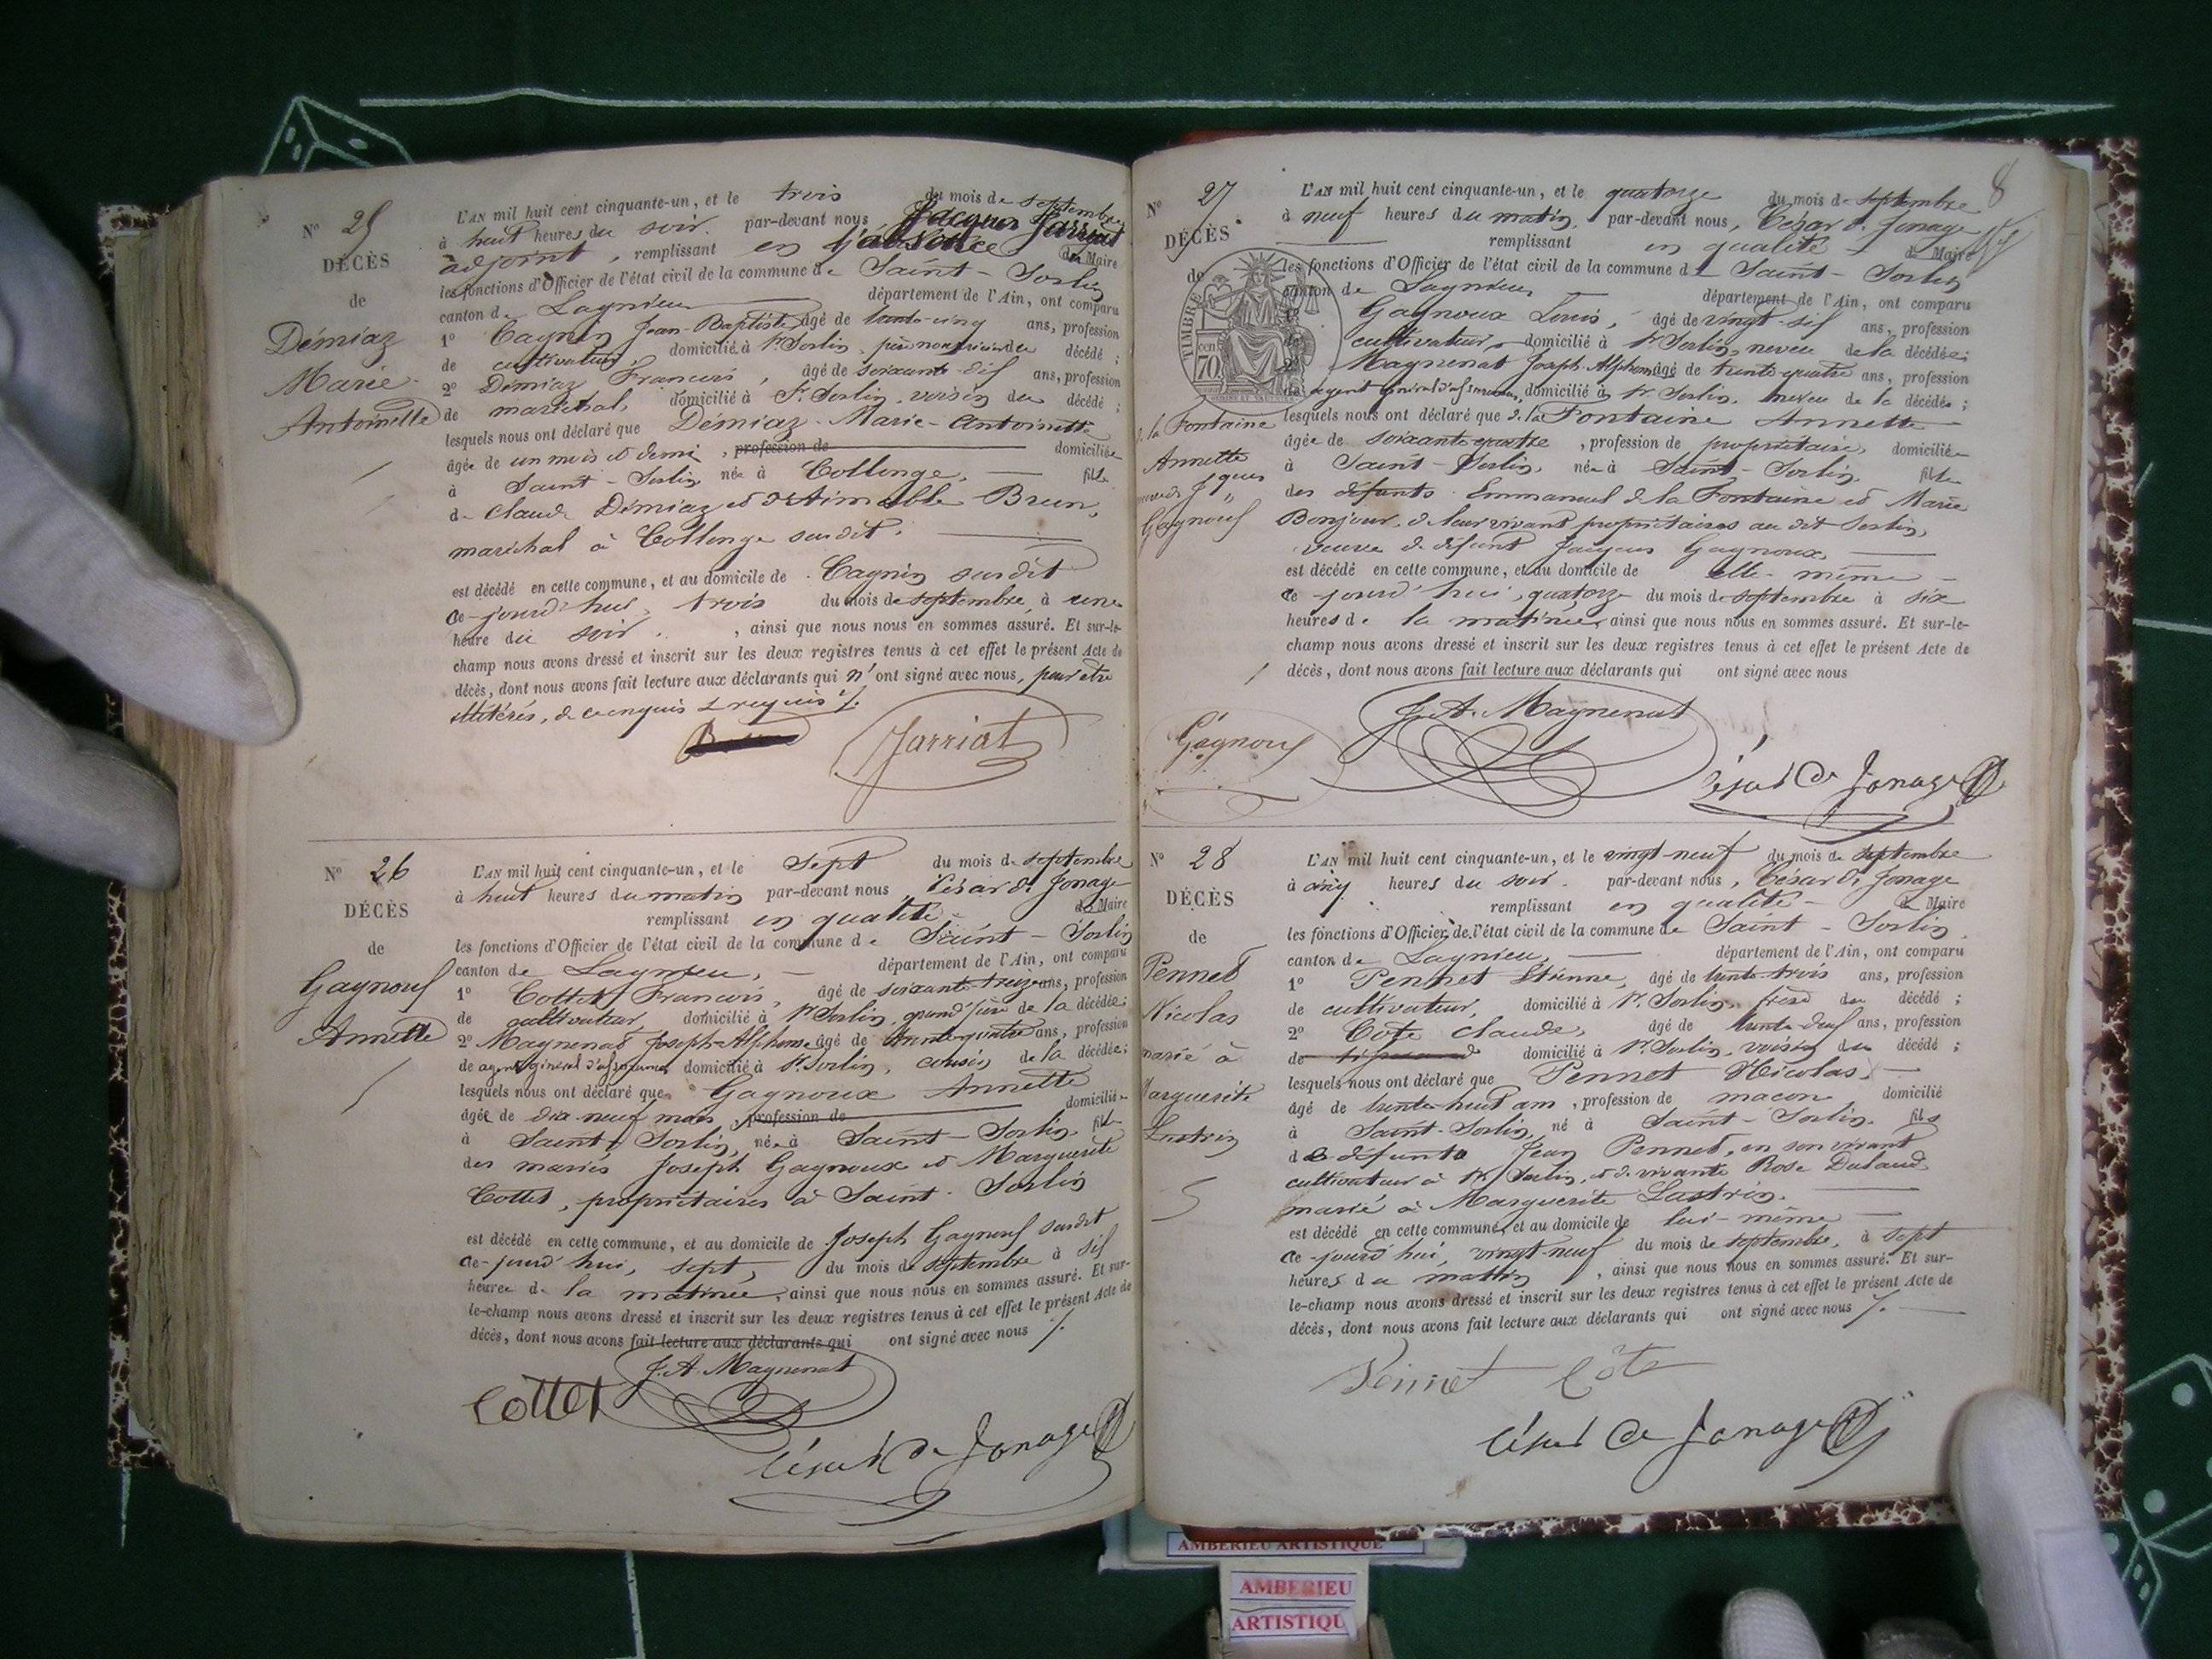 Nº 25
DÉCÈS
de
Démiaz
Marie
Antoinette
L'AN mil huit cent cinquante-un, et le trois du mois de septembre
à huit heures du soir. par-devant nous Jacques Jarriat
adjoint, remplissant en l'absence du Maire
les fonctions d'Officier de l'état civil de la commune de Saint-Sorlin
canton de Lagnieu département de l'Ain, ont comparu
1º Cagnin Jean-Baptiste âgé de trente-cinq ans, profession
de cultivateur, domicilié à St Sorlin, père nourricier du décédé;
2º Démiaz Francois, âgé de soixante-dix ans, profession
de maréchal, domicilié à St Sorlin, voisin du décédé;
lesquels nous ont déclaré que Démiaz Marie-Antoinette
âgée de un mois et demi, profession de domiciliée
à Saint-Sorlin née à Collonge, fille
de Claude Démiaz et d'Aimable Brun,
maréchal à Collonge susdit.
est décédé en cette commune, et au domicile de Cagnin susdit
ce-jourd'hui, trois du mois de septembre à une
heure du soir, ainsi que nous nous en sommes assuré. Et sur-le-
champ nous avons dressé et inscrit sur les deux registres tenus à cet effet le présent Acte de
décès, dont nous avons fait lecture aux déclarants qui n'ont signé avec nous, pour être
illitérés, de ce enquis & requis ./.
Jarriat
Nº 26
DÉCÈS
de
Gagnoux
Annette
L'AN mil huit cent cinquante-un, et le Sept du mois de septembre
à huit heures du matin par-devant nous César de Jonage
remplissant en qualité de Maire
les fonctions d'Officier de l'état civil de la commune de Saint-Sorlin
canton de Lagnieu, département de l'Ain, ont comparu
1º Cottet Francois, âgé de soixante-treize ans, profession
de cultivateur, domicilié à St Sorlin, grand'père de la décédée;
2º Magnenat Joseph-Alphonse âgé de trente-quatre ans, profession
de agent général d'assurances domicilié à St Sorlin, cousin de la décédée;
lesquels nous ont déclaré que Gagnoux Annette
âgée de dix-neuf mois, profession de domiciliée
à Saint-Sorlin, née à Saint-Sorlin fille
des mariés Joseph Gagnoux et Marguerite
Cottet, propriétaires à Saint-Sorlin
est décédé en cette commune, et au domicile de Joseph Gagnoux susdit
ce-jourd'hui, sept, du mois de septembre à six
heures de la matinée, ainsi que nous nous en sommes assuré. Et sur-
le-champ nous avons dressé et inscrit sur les deux registres tenus à cet effet le présent Acte de
décès, dont nous avons fait lecture aux déclarants qui ont signé avec nous ./.
J. A. Magnenat
Cottet
César de Jonage
8
Nº 27
DÉCÈS
de
TIMBRE
cen
70
de la Fontaine
Annette
Jques
Gagnoux
L'AN mil huit cent cinquante-un, et le quatorze du mois de septembre
à neuf heures du matin, par-devant nous, César de Jonage
remplissant en qualité de Maire
les fonctions d'Officier de l'état civil de la commune de Saint-Sorlin
canton de Lagnieu, département de l'Ain, ont comparu
Gagnoux Louis, âgé de vingt-six ans, profession
cultivateur, domicilié à St Sorlin, neveu de la décédée;
Magnenat Joseph-Alphonse âgé de trente-quatre ans, profession
de agent général d'assurances, domicilié à St Sorlin, neveu de la décédée;
lesquels nous ont déclaré que de la Fontaine Annette
âgée de soixante-quatre, profession de propriétaire, domiciliée
à Saint-Sorlin, née à Saint-Sorlin, fille
des défunts Emmanuel de la Fontaine et Marie
Bonjour, de leur vivant propriétaires au dit Sorlin,
veuve de défunt Jacques Gagnoux,
est décédé en cette commune, et au domicile de elle-même
ce-jourd'hui, quatorze du mois de septembre à six
heures de la matinée, ainsi que nous nous en sommes assuré. Et sur-le-
champ nous avons dressé et inscrit sur les deux registres tenus à cet effet le présent Acte de
décès, dont nous avons fait lecture aux déclarants qui ont signé avec nous
J. A. Magnenat
Gagnoux
César de Jonage
Nº 28
DÉCÈS
de
Pennet
Nicolas
marié à
Marguerite
Lastrin
L'AN mil huit cent cinquante-un, et le vingt-neuf du mois de septembre
à cinq heures du soir. par-devant nous, César de Jonage
remplissant en qualité de Maire
les fonctions d'Officier de l'état civil de la commune de Saint-Sorlin
canton de Lagnieu, département de l'Ain, ont comparu
1º Pennet Etienne, âgé de trente-trois ans, profession
de cultivateur, domicilié à St Sorlin, frère du décédé;
2º Cote Claude, âgé de trente-deux ans, profession
de domicilié à St Sorlin, voisin du décédé;
lesquels nous ont déclaré que Pennet Nicolas,
âgé de trente-huit ans, profession de macon domicilié
à Saint-Sorlin, né à Saint-Sorlin. fils
de défunt Jean Pennet, en son vivant
cultivateur à St Sorlin, et de vivante Rose
marié à Marguerite Lastrin.
est décédé en cette commune, et au domicile de lui-même
ce-jourd'hui, vingt-neuf du mois de septembre, à sept
heures du matin, ainsi que nous nous en sommes assuré. Et sur-
le-champ nous avons dressé et inscrit sur les deux registres tenus à cet effet le présent Acte de
décès, dont nous avons fait lecture aux déclarants qui ont signé avec nous ./.
Pennet Côte
César de Jonage
AMBERIEU ARTISTIQUE
AMBERIEU
ARTISTIQU